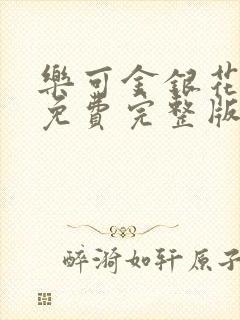 樂可金銀花
免費完整版
醉漪如轩原子